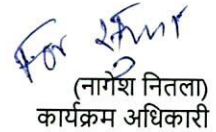 For
(नागेश नितला)
कार्यक्रम अधिकारी